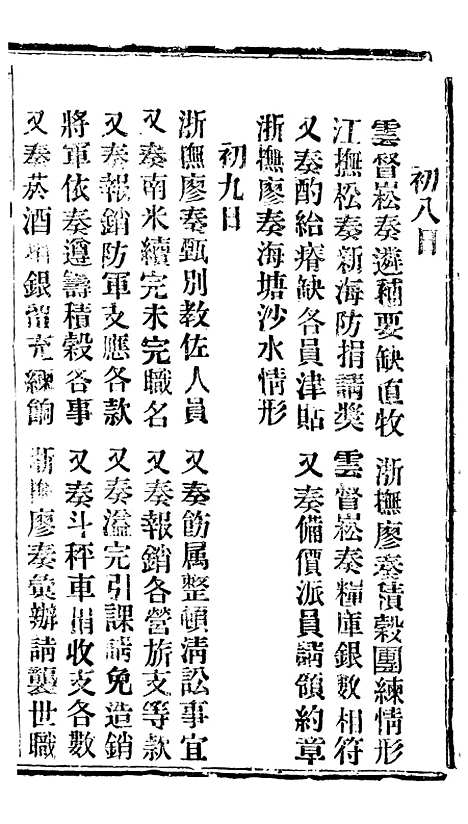 初八日
雲督崧奏遴補要缺直牧
浙撫廖奏積穀團練情形
江撫松奏新海防捐請獎
雲督崧奏糧庫銀數相符
又奏酌給瘠缺各員津貼
又奏備價派員請領約章
浙撫廖奏海塘沙水情形
初九日
浙撫廖奏甄別教佐人員
又奏飭属整頓清訟事宜
又奏南米續完未完職名
又奏報銷各營旅支等款
又奏報銷防軍支應各款
又奏溢完引課請免造銷
將軍依奏遵籌積穀各事
又奏斗秤車捐收支各數
又奏菸酒增銀留充練餉
浙撫廖奏彙辦請襲世職